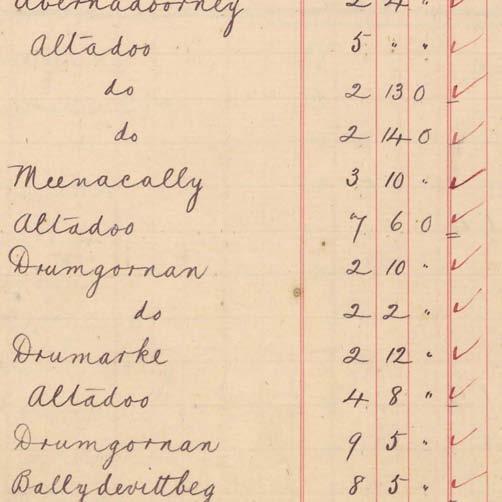 Avernadoorney 2 4 "
Altadoo 5 " "
do 2 13 0
do 2 14 0
Meenacally 3 10 "
Altadoo 7 6 0
Drumgornan 2 10 "
do 2 2 "
Drumarke 2 12 "
Altadoo 4 8 "
Drumgornan 9 5 "
Ballydevittbeg 8 5 "